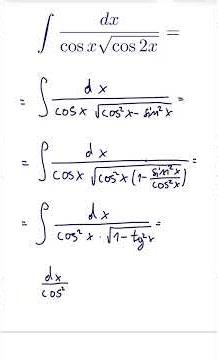 ∫ dx / (cos x √(cos 2x)) =
= ∫ dx / (cos x √(cos²x - sin²x)) =
= ∫ dx / (cos x √(cos²x (1 - sin²x/cos²x))) =
= ∫ dx / (cos²x · √(1 - tg²x)) =
dx / cos²